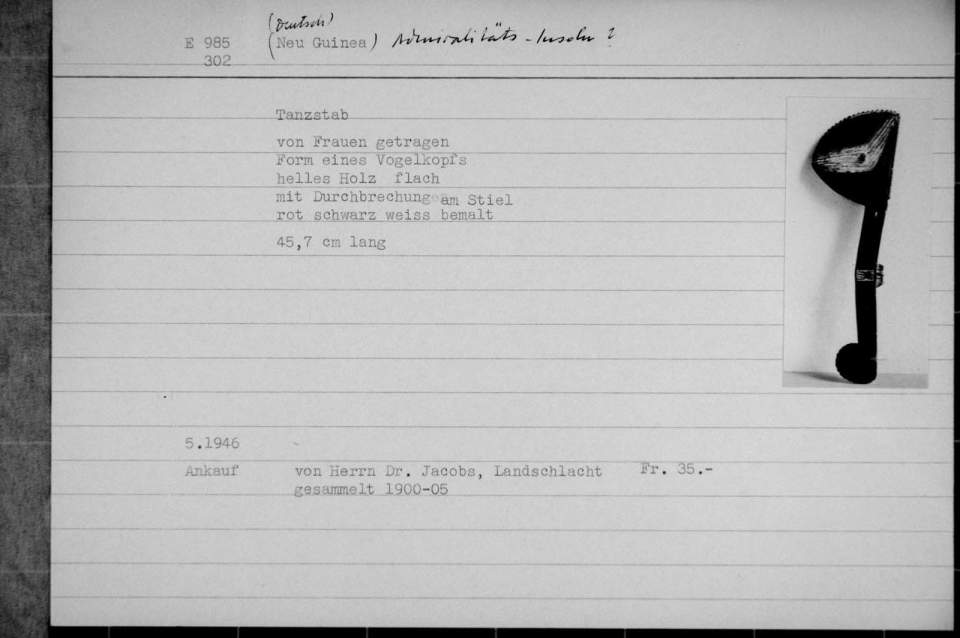 (Deutsch)
E 985 (Neu Guinea) Admiralitäts-Inseln ?
302
Tanzstab
von Frauen getragen
Form eines Vogelkopfs
helles Holz flach
mit Durchbrechungen am Stiel
rot schwarz weiss bemalt
45,7 cm lang
5.1946
Ankauf von Herrn Dr. Jacobs, Landschlacht Fr. 35.-
gesammelt 1900-05